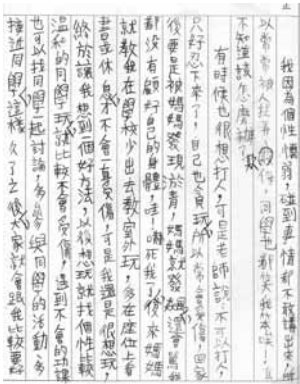 我因為個性懦弱，碰到事情都不敢講出來，所
以常常被人找我麻煩，同學也都笑我
不知道該怎麼辦？
有時候也很想打人，可是老師說不可以打人，
只好忍下來了！自己也貪玩，所以常會受傷，回家
後要是被媽媽發現瘀青，媽媽就發，還會罵我
都沒有顧好自己的身體，哇！嚇死我了！後來媽媽
就教我在學校少出去教室外玩，多在座位上看
書或休息，才不會一直受傷，可是我還是很想玩，
終於讓我想到個好方法，以後想玩就找個性比較
溫和的同學玩就比較不會受傷，遇到不會的功課
也可以找同學一起討論，多參與同學的活動，多
接近同學，這樣久了之後大家就會跟我比較要好